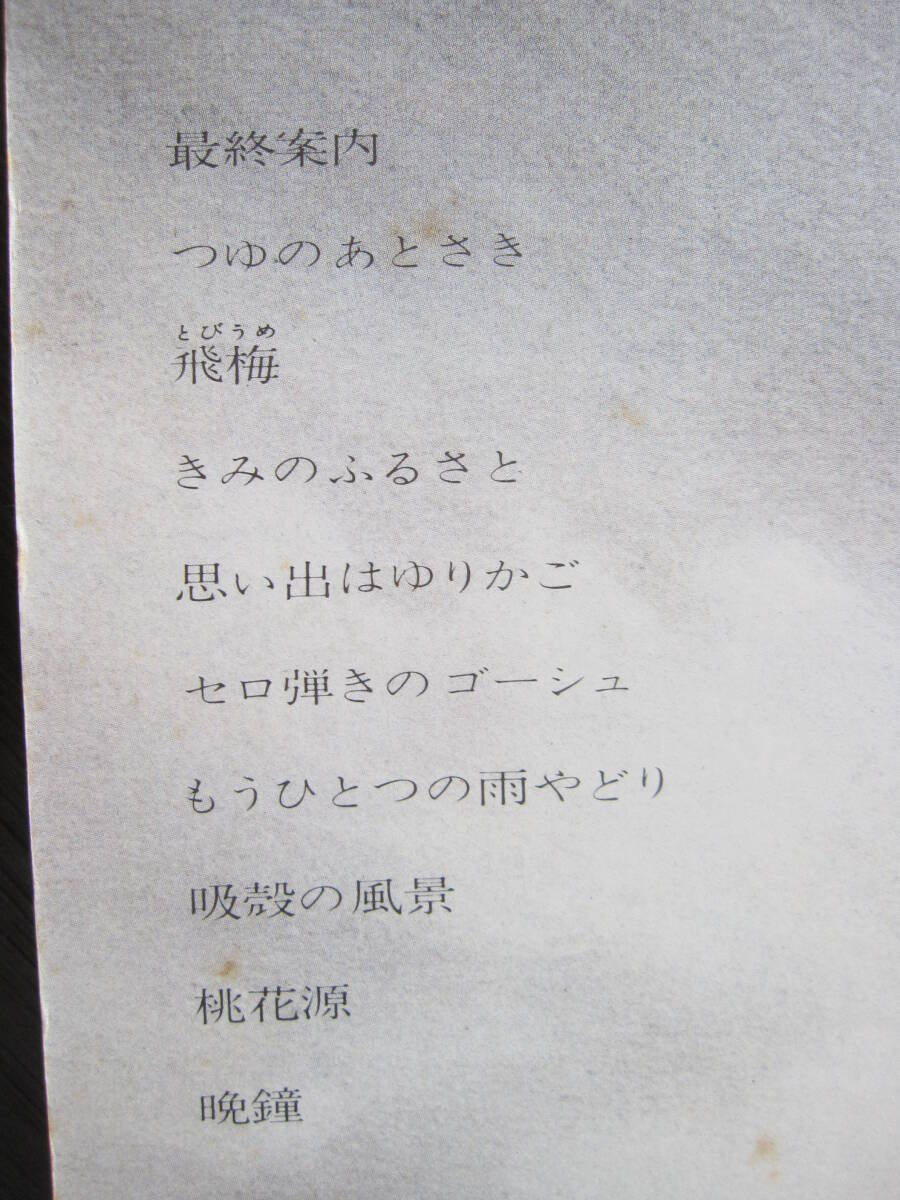 最終案内
つゆのあとさき
とびうめ
飛梅
きみのふるさと
思い出はゆりかご
セロ弾きのゴーシュ
もうひとつの雨やどり
吸殻の風景
桃花源
晩鐘